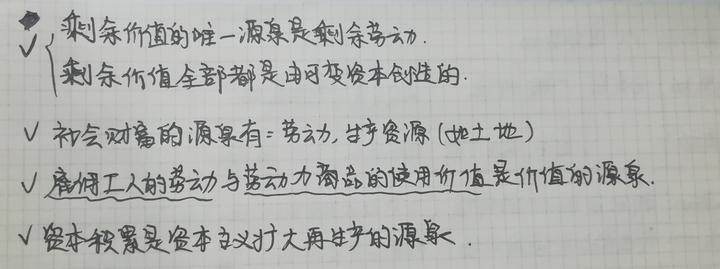 剩余价值的唯一源泉是剩余劳动.
剩余价值全部都是由可变资本创造的.
√ 社会财富的源泉有:劳动,生产资源(如土地)
√ 雇佣工人的劳动与劳动力商品的使用价值是价值的源泉.
√ 资本积累是资本主义扩大再生产的源泉.